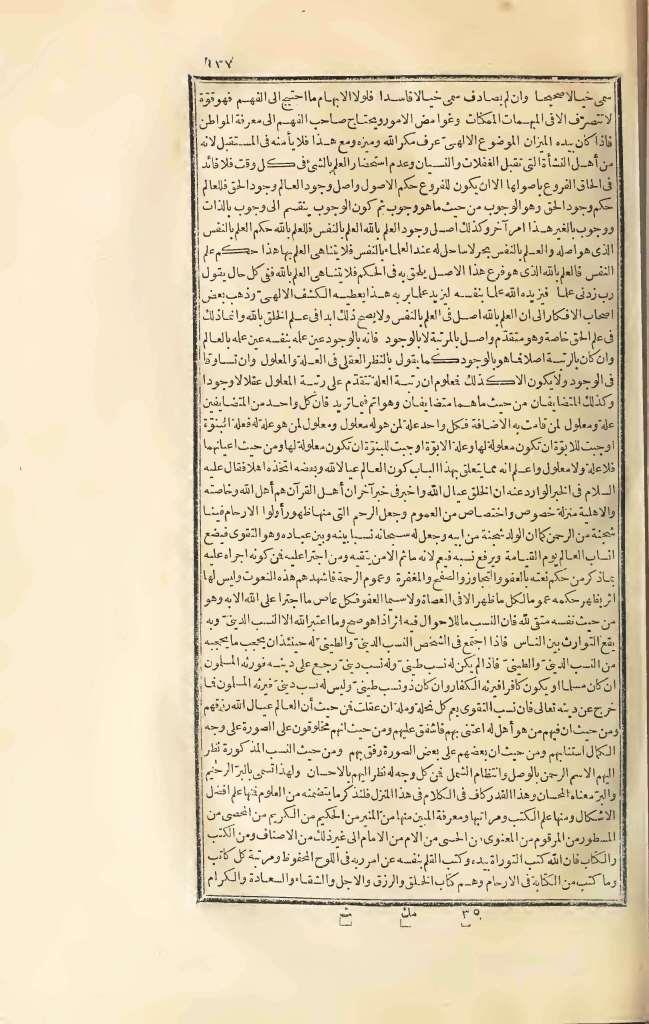 ١٣٧
سمى خيالا صحيحا وان لم يصادف سمى خيالا فاسدا فلولا الابهام ما احتيج الى الفهم فهو قوّة
لا تتصرّف الا فى المبهمات الممكنات وغوامض الامور ويحتاج صاحب الفهم الى معرفة المواطن
فاذا كان بيده الميزان الموضوع الالهىّ عرف مكر الله وميزه ومع هذا فلا يأمنه فى المستقبل لانه
من أهل النشأة التى تقبل الغفلات والنسيان وعدم استحضار العلم بالشئ فى كل وقت فلا فائد
فى الحاق الفروع باصولها الا ان يكون للفروع حكم الاصول واصل وجود العالم وجود الحق فللعالم
حكم وجود الحق وهو الوجوب من حيث ما هو وجوب ثم كون الوجوب ينقسم الى وجوب بالذات
ووجوب بالغير هذا امر آخر وكذلك اصل وجود العلم بالله العلم بالنفس فللعلم بالله حكم العلم بالنفس
الذى هو اصله والعلم بالنفس بحر لا ساحل له عند العلماء بالنفس فلا يتناهى العلم بها هذا حكم علم
النفس فالعلم بالله الذى هو فرع هذا الاصل يلحق به فى الحكم فلا يتناهى العلم بالله ففى كل حال يقول
رب زدنى علما فيزيده الله علما بنفسه ليزيد علما بربه هذا يعطيه الكشف الالهىّ وذهب بعض
اصحاب الافكار الى ان العلم بالله اصل فى العلم بالنفس ولا يصح ذلك ابدا فى علم الخلق بالله وانما ذلك
فى علم الحق خاصة وهو متقدّم واصل بالمرتبة لا بالوجود فانه بالوجود عين علمه بنفسه عين علمه بالعالم
وان كان بالرتبة اصلا فما هو بالوجود كما يقول بالنظر العقلى فى العلة والمعلول وان تساوقا
فى الوجود ولا يكون الا كذلك فمعلوم ان رتبة العلة تتقدّم على رتبة المعلول عقلا لا وجودا
وكذلك المتضايفان من حيث ما هما متضايفان وهو اتم فيما تريد فان كل واحد من المتضايفين
علة ومعلول لمن قامت به الاضافة فكل واحد علة لمن هو له معلول ومعلول لمن هو له علة فعلة البنوّة
اوجبت للابوّة ان تكون معلولة لها وعلة الابوّة اوجبت للبنوّة ان تكون معلولة لها ومن حيث اعيانهما
فلا علة ولا معلول واعلم انه مما يتعلق بهذا الباب كون العالم عيالا لله وبعضه اتخذه اهلا فقال عليه
السلام فى الخبر الوارد عنه ان الخلق عيال الله واخبر فى خبر آخر ان أهل القرآن هم أهل الله وخاصته
والاهلية منزلة خصوص واختصاص من العموم وجعل الرحم التى منها ظهور أولوا الارحام فينا
شجنة من الرحمن كما ان الولد شجنة من ابيه وجعل له سبحانه نسبا بينه وبين عباده وهو التقوى فيضع
انساب العالم يوم القيامة ويرفع نسبه فيعم لانه ما ثم الا من يتقيه ومن اجترأ عليه فمن كونه اجراه عليه
بما ذكر من حكم نعته بالعفو والتجاوز والصفح والمغفرة وعموم الرحمة فاشهدهم هذه النعوت وليس لها
اثر يظهر حكمه عموما لكل ما ظهر الا فى العصاة ولا سيما العفو فكل عاص ما اجترأ على الله الا به وهو
من حيث نفسه متق لله فان النسب ما للاحوال فيه اثر اذا هو صح وما اعتبر الله الا النسب الدينىّ وبه
يقع التوارث بين الناس فاذا اجتمع فى الشخص النسب الدينىّ والطينىّ له حينئذ ان يحجب ما يحجبه
من النسب الدينىّ والطينىّ فاذا لم يكن له نسب طينىّ وله نسب دينىّ رجع على دينه فورثه المسلمون
ان كان مسلما او يكون كافرا فيرثه الكفار وان كان ذو نسب طينىّ وليس له نسب دينىّ فيرثه المسلمون فما
خرج عن دينه تعالى فان نسب التقوى يعم كل نحلة وملة ان عقلت فمن حيث أن العالم عيال الله رزقهم
ومن حيث ان فيهم من هو أهل له اعتنى بهم فاشفق عليهم ومن حيث انهم مخلوقون على الصورة على وجه
الكمال استنابهم ومن حيث ان بعضهم على بعض الصورة رفق بهم ومن حيث النسب المذكورة نظر
اليهم الاسم الرحمن بالوصل وانتظام الشمل فمن كل وجه له نظر اليهم بالاحسان ولهذا تسمى بالبرّ الرحيم
والبرّ معناه المحسان وهذا القدر كاف فى الكلام فى هذا المنزل فلنذكر ما يتضمنه من العلوم فمنها علم افضل
الاشكال ومنها علم الكتب ومراتبها ومعرفة المبين منها من المنير من الحكيم من الكريم من المحصى من
المسطور من المرقوم من المعنوى من الحسى من الام من الامام الى غير ذلك من الاصناف ومن الكتب
والكتاب فان الله كتب التوراة بيده وكتب القلم بنفسه عن امر ربه فى اللوح المحفوظ ومرتبة كل كاتب
وما كتب من الكتابة فى الارحام وهم كتاب الخلق والرزق والاجل والشقاء والسعادة والكرام
٣٥ مك مع